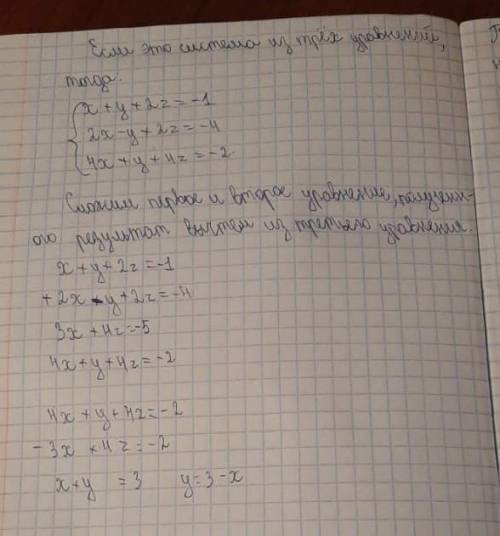 Если это система из трёх уравнений,
тогда:
x + y + 2z = -1
2x - y + 2z = -4
4x + y + 4z = -2
Сложим первое и второе уравнение, полученн-
ого результат вычтем из третьего уравнения.
x + y + 2z = -1
+ 2x - y + 2z = -4
3x + 4z = -5
4x + y + 4z = -2
4x + y + 4z = -2
- 3x + 4z = -2
x + y = 3 y = 3 - x